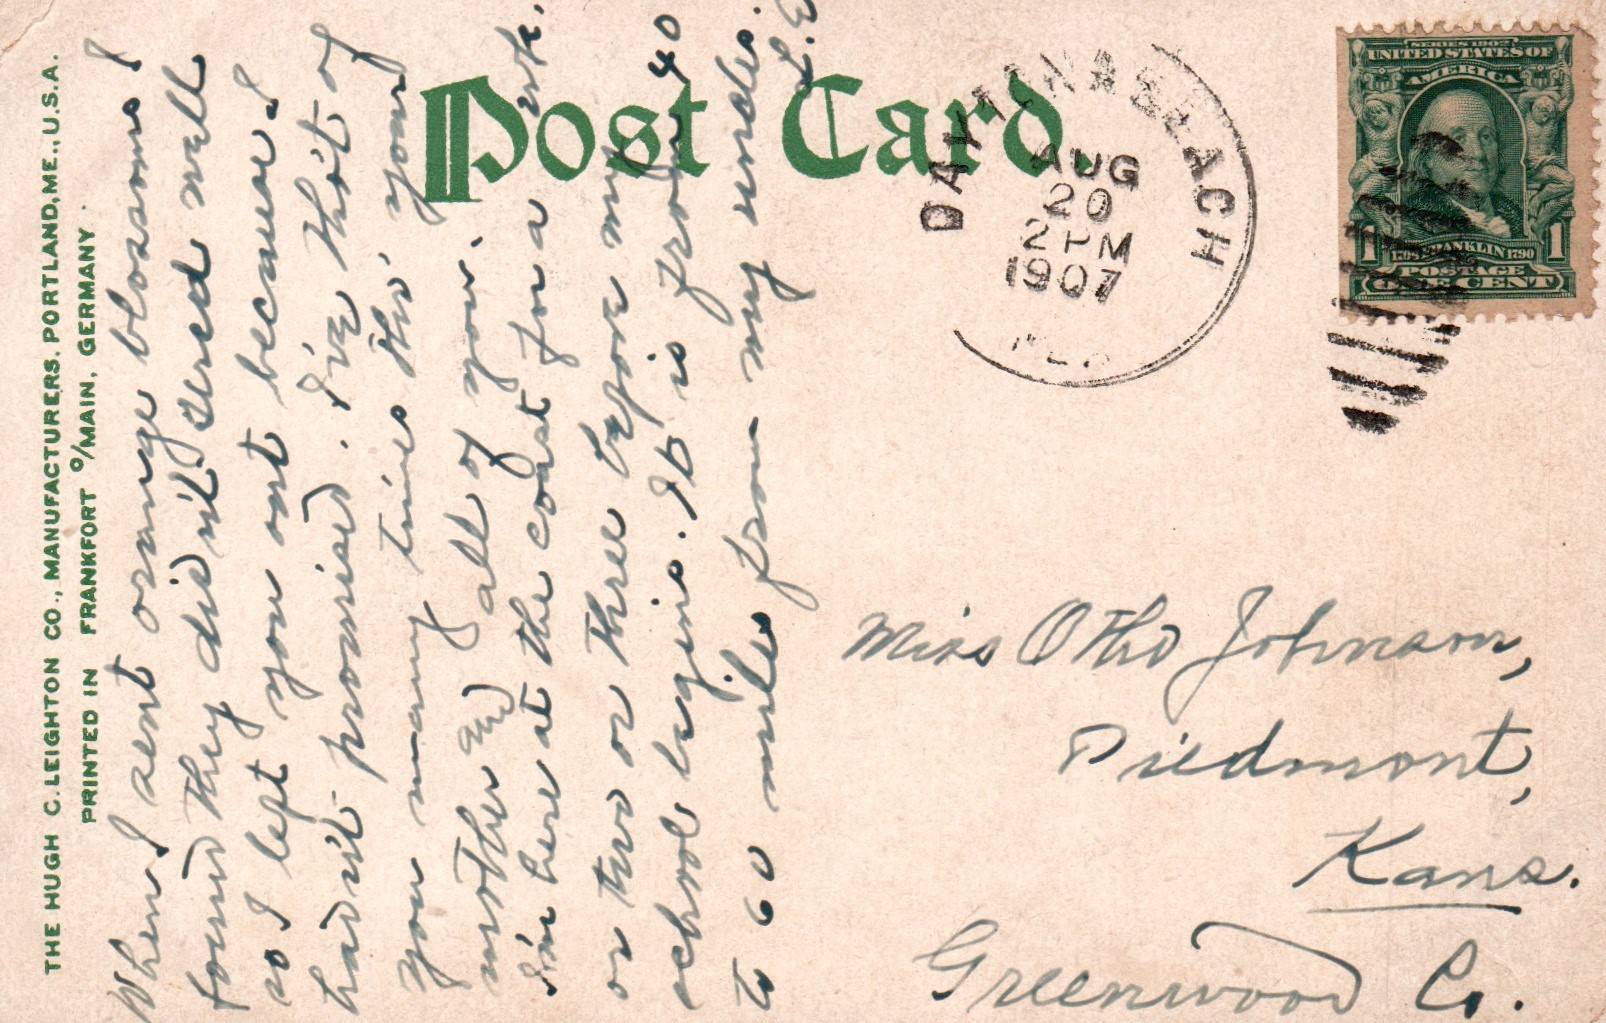 THE HUGH C. LEIGHTON CO., MANUFACTURERS, PORTLAND, ME., U.S.A.
PRINTED IN FRANKFORT O/MAIN, GERMANY.
Post Card.
DAYTONA BEACH
AUG
20
2 PM
1907
FLA.
SERIES 1902
UNITED STATES OF
AMERICA
1 FRANKLIN 1790 1
POSTAGE
ONE CENT
When I sent orange blossoms I
found they didn't send well
so I left you out because I
hadn't promised. I've tho't of
you many times tho', your
mother and all of you.
I'm here at the coast for a wk.
or two or three before my
school begins. It is from 40
to 60 miles from my uncles.
L.E
Miss Otho Johnson,
Piedmont,
Kans.
Greenwood Co.